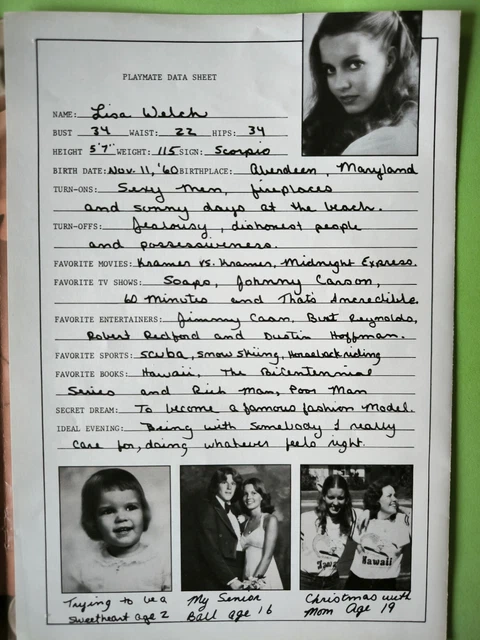 PLAYMATE DATA SHEET
NAME: Lisa Welch
BUST 34 WAIST: 22 HIPS: 34
HEIGHT 5'7" WEIGHT: 115 SIGN: Scorpio
BIRTH DATE: Nov. 11, '60 BIRTHPLACE: Aberdeen, Maryland
TURN-ONS: Sexy men, fireplaces
and sunny days at the beach.
TURN-OFFS: Jealousy, dishonest people
and possessiveness.
FAVORITE MOVIES: Kramer vs. Kramer, Midnight Express.
FAVORITE TV SHOWS: Soaps, Johnny Carson,
60 Minutes and Thats Incredible.
FAVORITE ENTERTAINERS: Jimmy Caan, Burt Reynolds,
Robert Redford and Dustin Hoffman.
FAVORITE SPORTS: scuba, snow skiing, horseback riding
FAVORITE BOOKS: Hawaii, The Bicentennial
Series and Rich Man, Poor Man
SECRET DREAM: To become a famous fashion model.
IDEAL EVENING: Being with somebody I really
care for, doing whatever feels right.
Hawaii
Trying to be a
sweetheart age 2
My Senior
Ball age 16
Christmas with
Mom Age 19